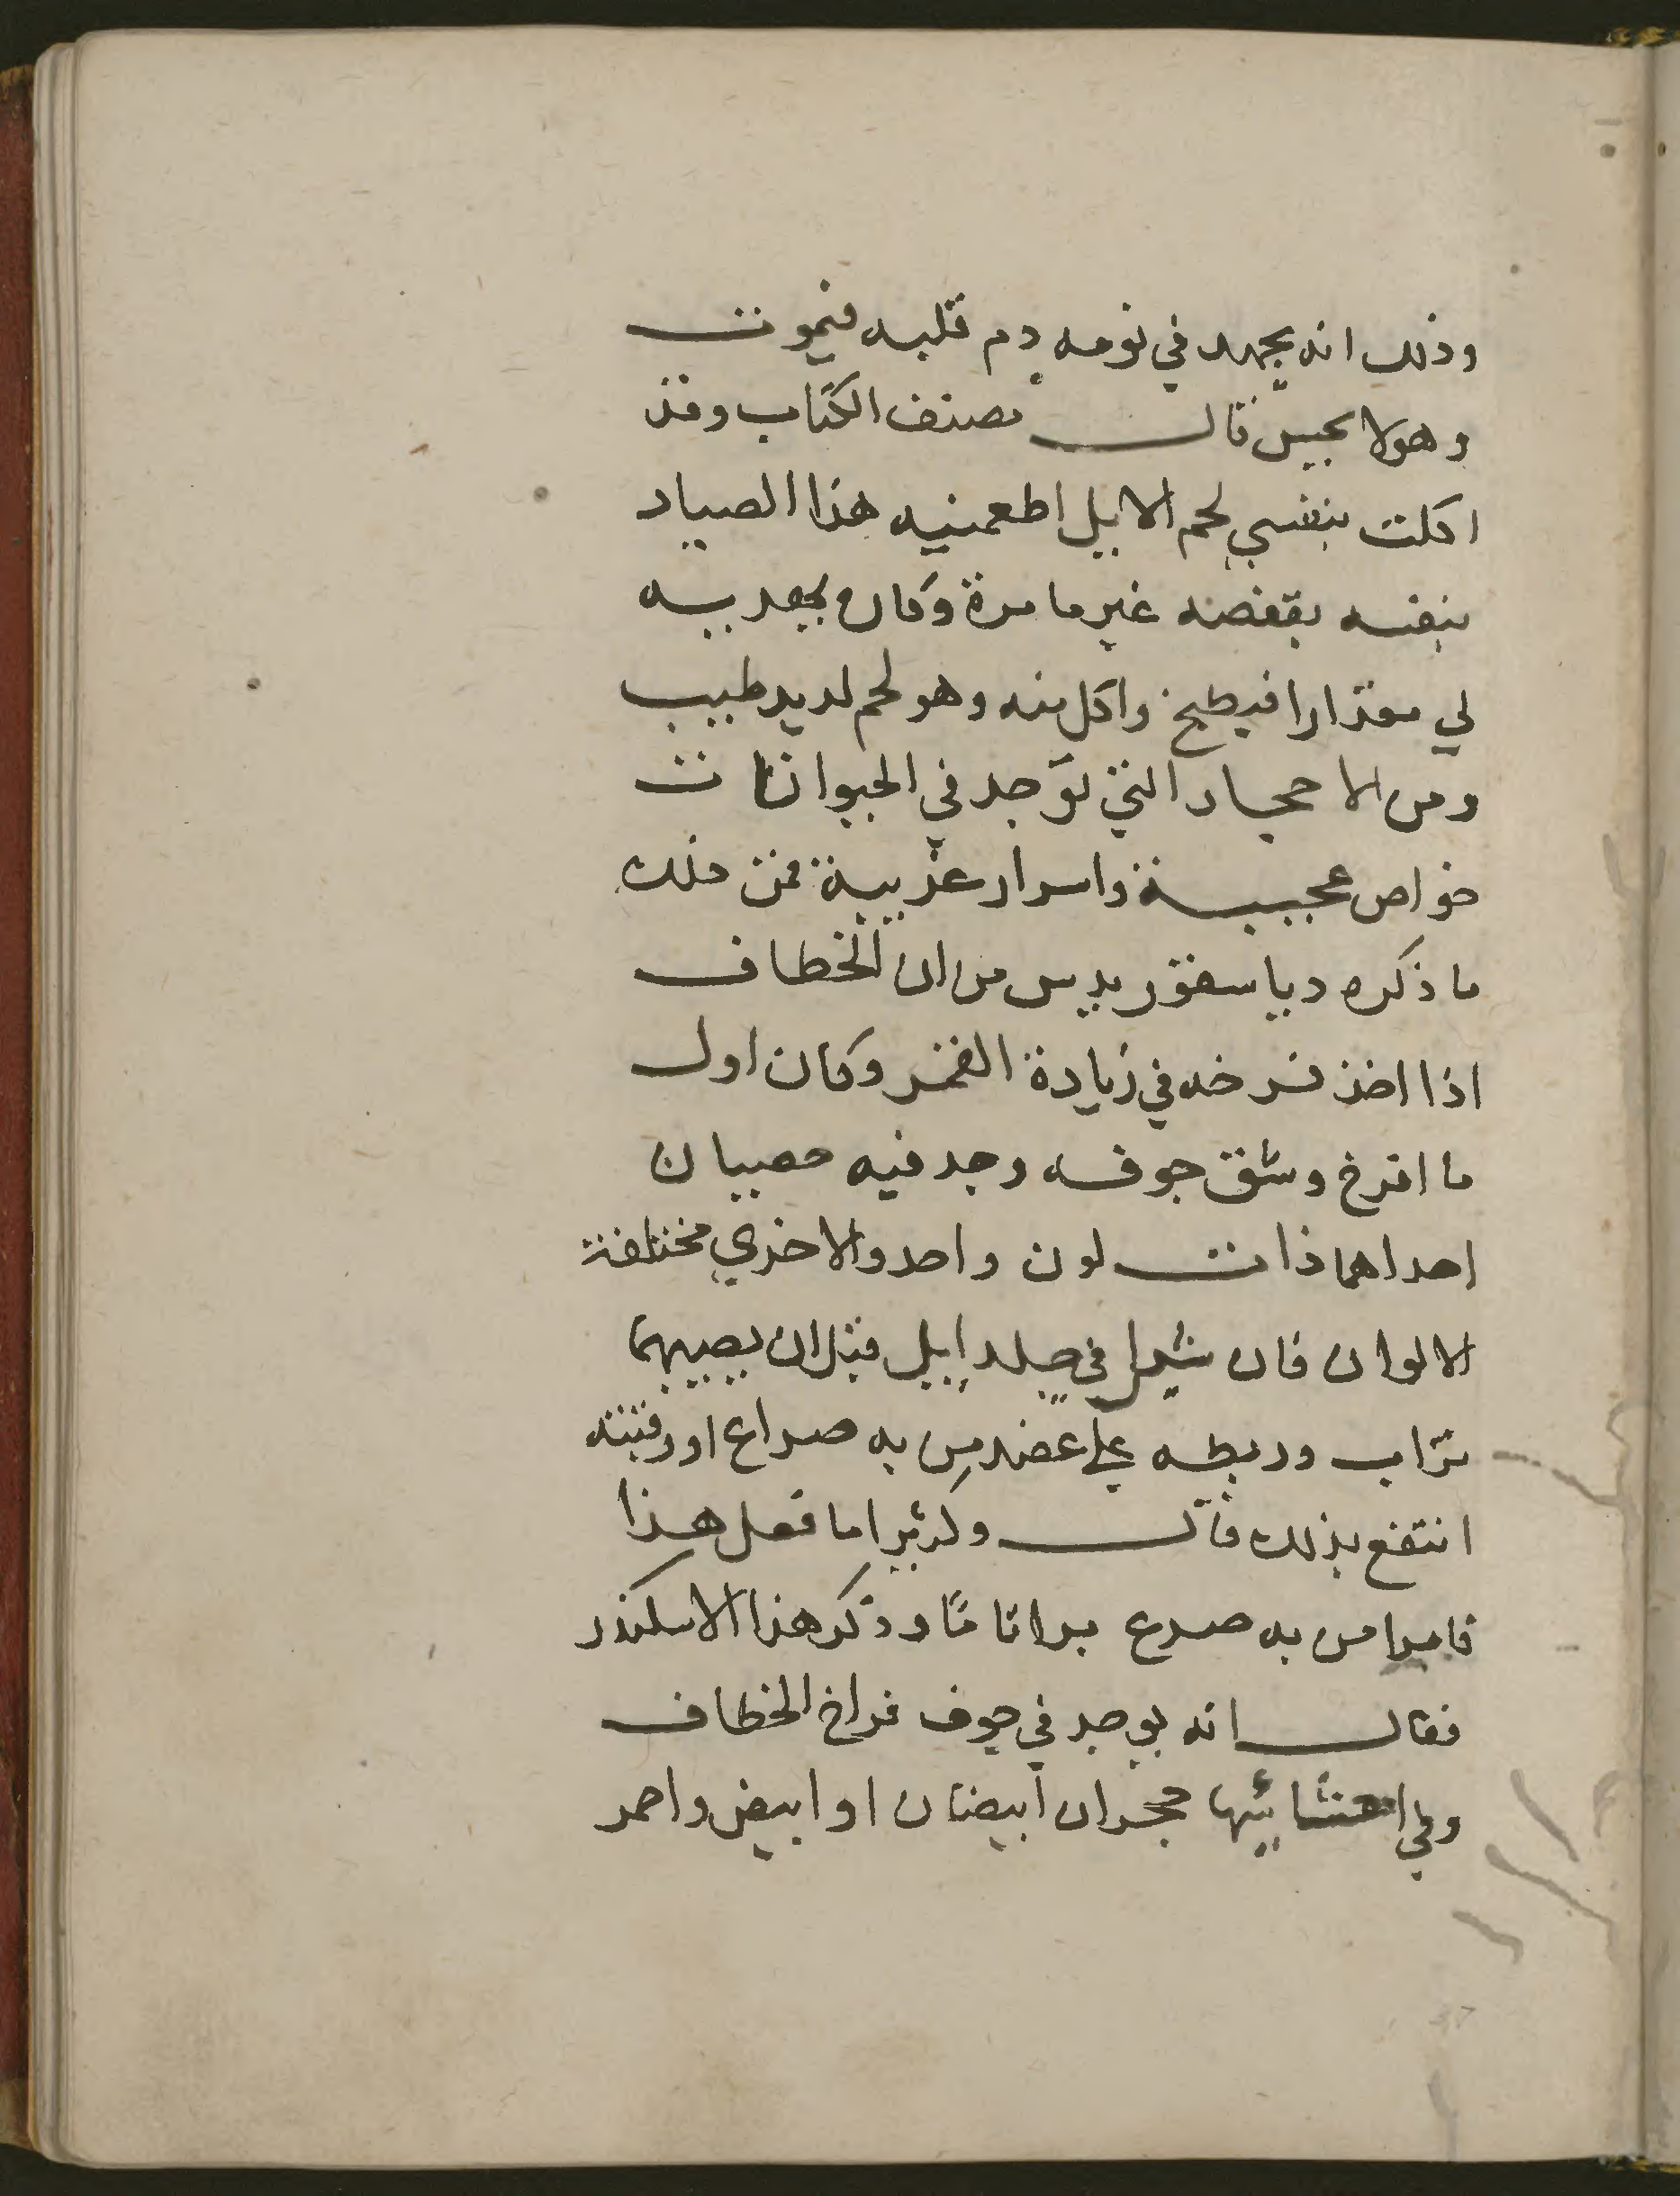 وذلك انه يجمد في نومه دم قلبه فيموت
وهو لا يحس قال مصنف الكتاب وقد
اكلت بنفسي لحم الايل اطعمنيه هذا الصياد
بنفسه بقفصه غير ما مرة وكان يهديه
لي مقدارا فيطبخ واكل منه وهو لحم لديد طيب
ومن الاحجار التي توجد في الحيوانات
خواص عجيبة واسرار غريبة فمن ذلك
ما ذكره دياسقوريدس من ان الخطاف
اذا اخذ فرخه في زيادة القمر وكان اول
ما افرخ وشق جوفه وجد فيه حصيان
احداهما ذات لون واحد والاخري مختلفة
الالوان فان شدا في جلد ايل قبل ان يصيبهما
تراب وربطه علي عضد من به صراع او رقبته
انتفع بذلك قال وكثيرا ما فعل هذا
فابرا من به صرع براتا مّا وذكر هذا الاسكندر
فقال انه يوجد في جوف فراخ الخطاف
وفي اعشائيها حجران ابيضان او ابيض واحمر